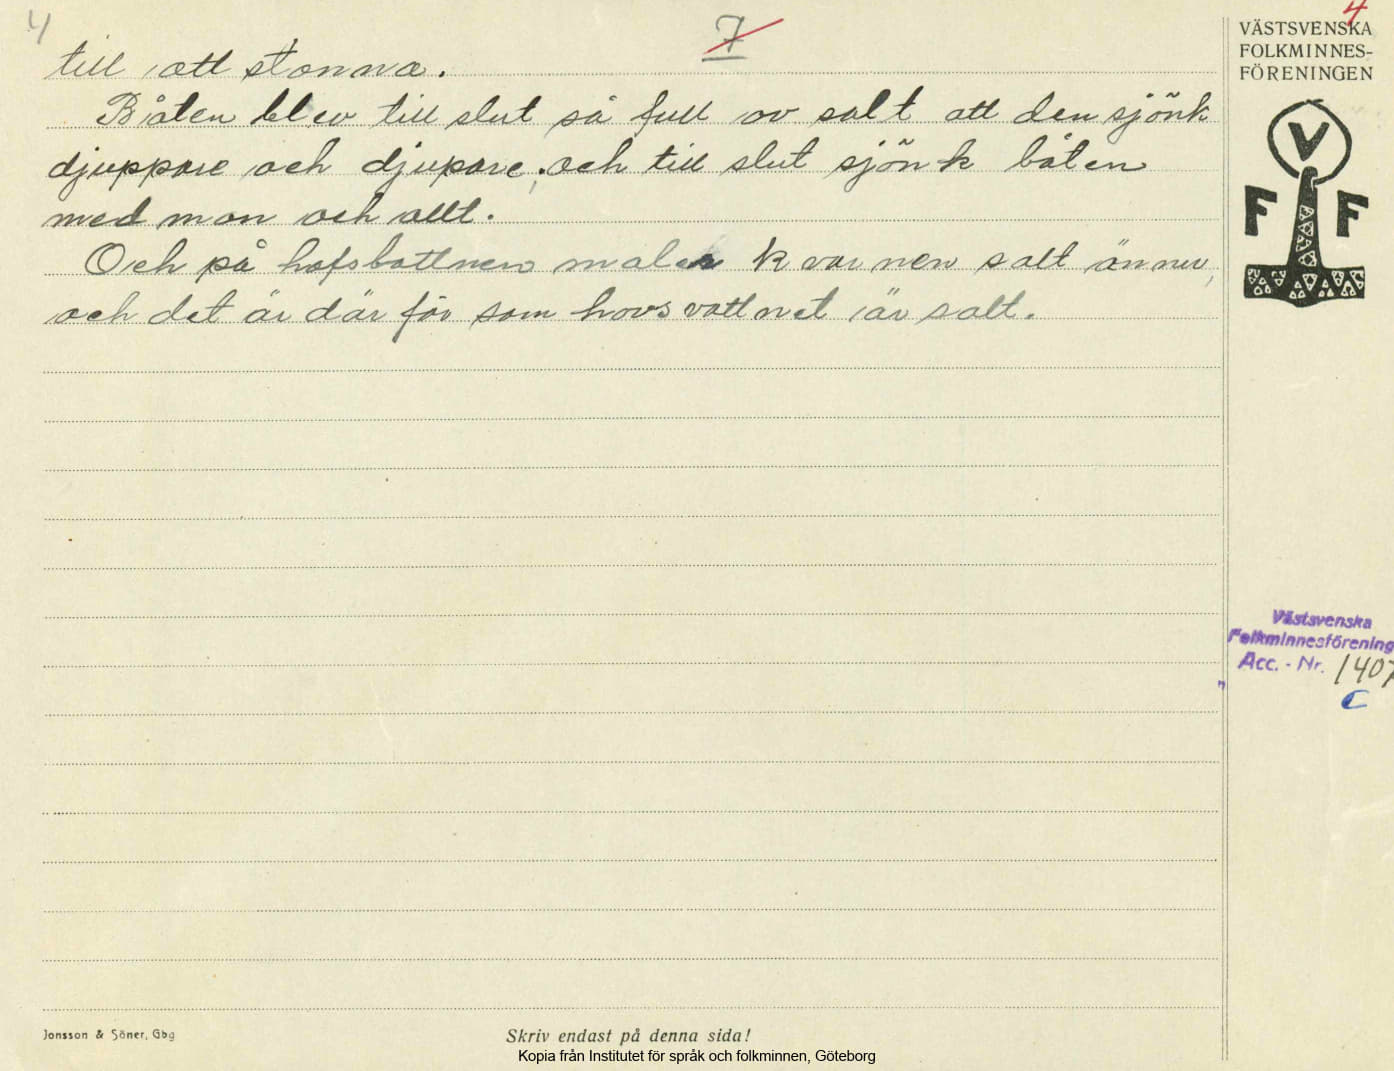 4
7
4
VÄSTSVENSKA
FOLKMINNES-
FÖRENINGEN
till att stanna.
Båten blev till slut så full av salt att den sjönk
djuppare och djupare, och till slut sjönk båten
med man och allt.
Och på hafsbottnen maler kvarnen salt ännu,
och det är där för som havsvattnet är salt.
V
F F
Västsvenska
Folkminnesförening
Acc. - Nr. 1407
C
Jonsson & Söner, Gbg
Skriv endast på denna sida!
Kopia från Institutet för språk och folkminnen, Göteborg